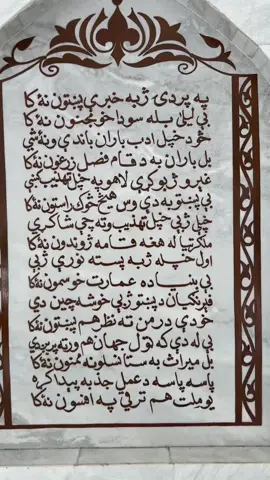 په پردۍ ژبه خبرې پښتون نۀ کا
بې لیلیٰ بله سودا خو مجنون نۀ کا
څو د خپل ادب باران باندې ونۀ شي
بل باران به د قام فصل زرغون نۀ کا
غېرو ژبو کړې لاهو په خپل تهذیب کښې
بې پښتو به دې وس هیڅ څوک راستون نۀ کا
خپلې ژبې خپل تهذیب وته چې شا کړي
ملګرتیا له هغه قامه ژوندون نۀ کا
اول خپله ژبه پسته نورې ژبې
بې بنیاده عمارت خو سمون نۀ کا
فېرنګیان د پښتو ژبې خوشه چین دي
خو دې درمن ته نظر هم پښتون نۀ کا
بې له دې که ټول جهان هم ورته پرېږدې
بل میراث به ستا نسلونه ممنون نۀ کا
پاسه پاسه د عمل جذبه پیدا کړه
یو ملت هم ترقي په افسون نۀ کا